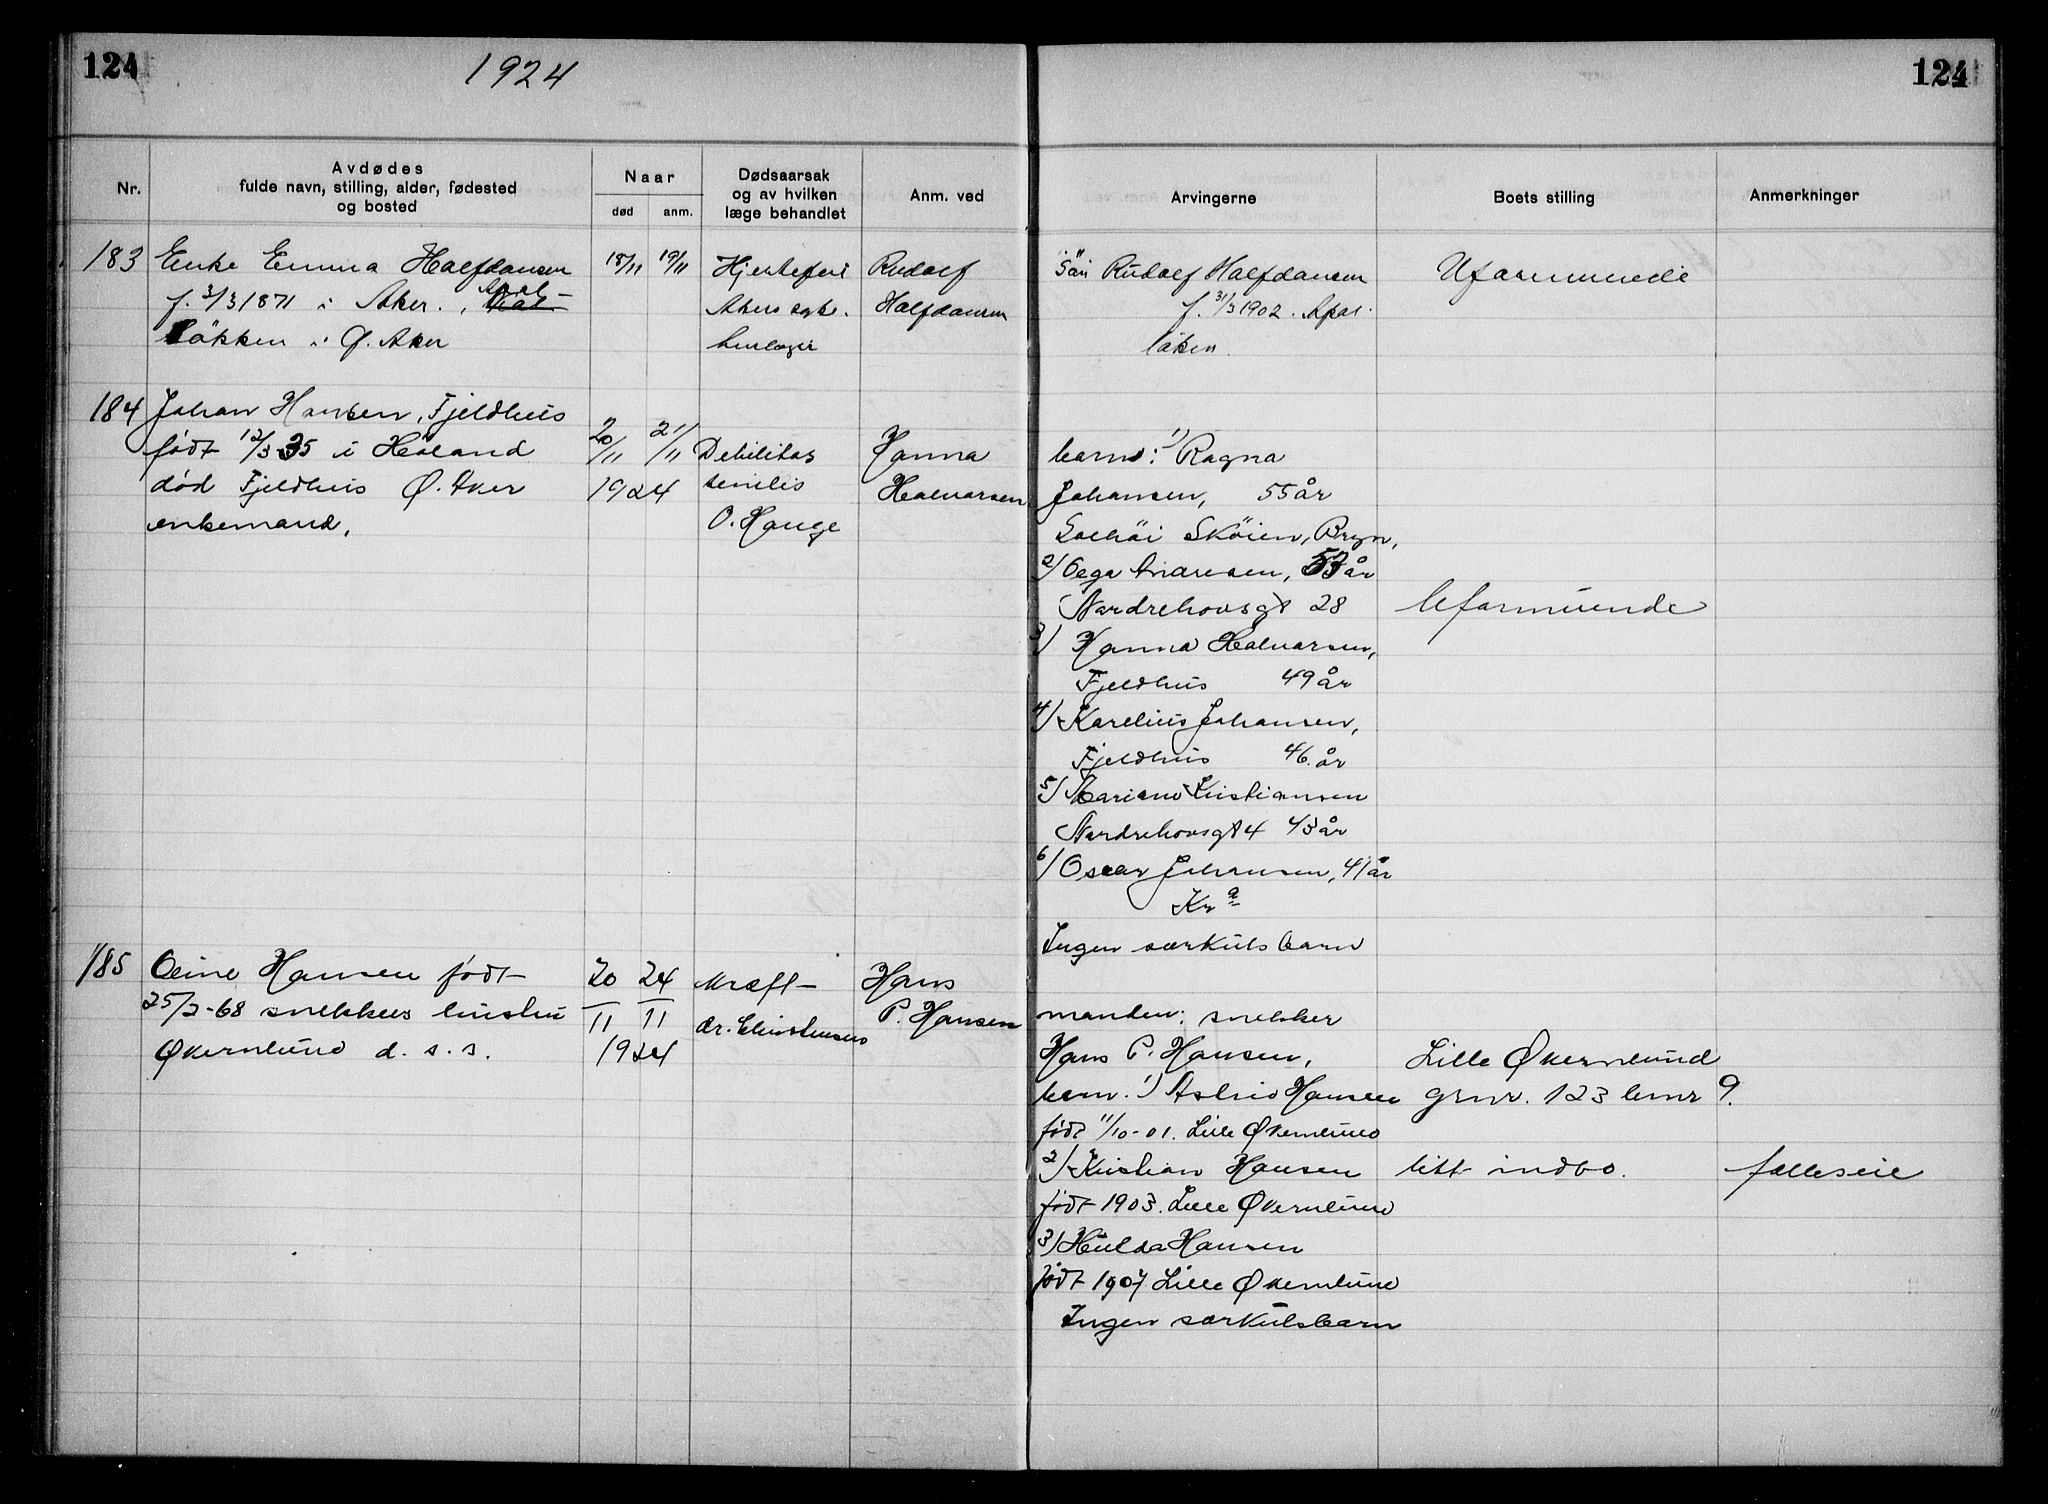 124
1924
124
Nr.
Avdødes
fulde navn, stilling, alder, fødested
og bosted
Naar
død
anm.
Dødsaarsak
og av hvilken
læge behandlet
Anm. ved
Arvingerne
Boets stilling
Anmerkninger
183
Enke Emma Halfdansen
f. 3/3 1871 i Aker. Apal-
Løkken i Ø. Aker
18/11 19/11
Hjertefeil
Akers syke.
Rudolf
Halfdansen
Søn Rudolf Halfdansen
f. 31/3 1902. Apal
løken.
Uformuende
184
Johan Hansen, Fjeldhus
født 12/3 35 i Høland
død Fjeldhus Ø. Aker
enkemand,
20/11 21/11
1924
Debilitas
senilis
O. Hauge
Hanna
Halvorsen
barn: 1) Ragna
Johansen, 55 år
Solhöi Sköien, Bryn,
2) Olga Andresen, 53 år
Nordrehovsgt 28
3) Hanna Halvorsen,
Fjeldhus 49 år
4) Karelius Johansen,
Fjeldhus 46 år
5) Kristiansen
Nordrehovsgt 4 43 år
6) Oscar Johansen, 41 år
Kra
Ingen særkulsbarn
Uformuende
185
Oline Hansen født
25/2-68 snekkers hustru
Økernlund d. s. s.
20 24
11 11
1924
Kræft
dr. Christensen
Hans
P. Hansen
manden: snekker
Hans P. Hansen,
barn. 1) Astrid Hansen
født 11/10-01. Lille Økernlund
2) Kristian Hansen
født 1903. Lille Økernlund
3) Hulda Hansen
født 1907 Lille Økernlund
Ingen særkulsbarn
Lille Økernlund
grnr. 123 bnr 9.
litt indbo.
fælleseie